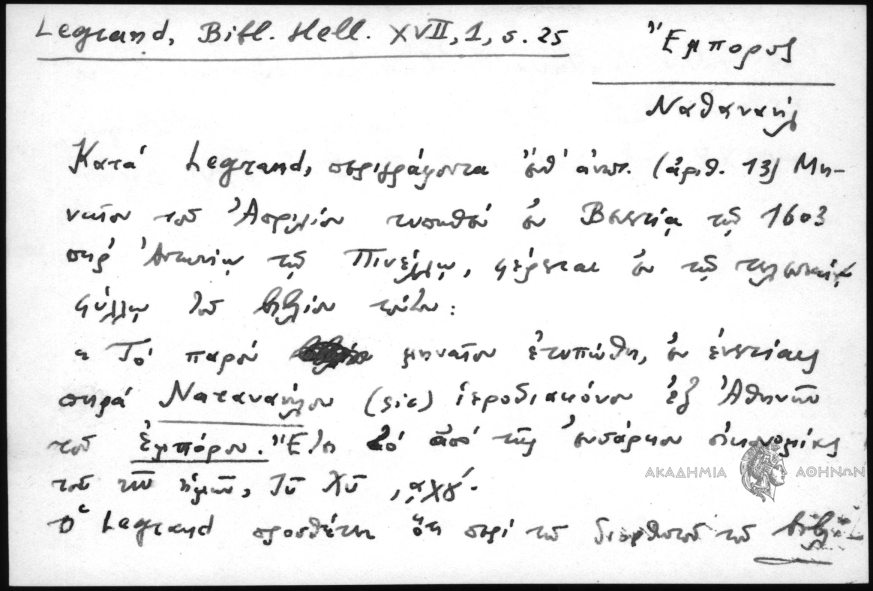 Legrand, Bibl. Hell. XVII, 1, σ. 25
Ἔμπορος
Ναθαναήλ
Κατά Legrand, περιγράφοντα ὑπ' ἀνωτ. (ἀριθ. 13) Μη-
ναῖον τοῦ Ἀπριλίου τυπωθέν ἐν Βενετίᾳ τῷ 1603
παρ' Ἀντωνίῳ τῷ Πινέλλῳ, φέρεται ἐν τῷ τελευταίῳ
φύλλῳ τοῦ βιβλίου τούτου:
« Τό παρόν μηναῖον ἐτυπώθη, ἐν ἐνετίαις
παρά Ναταναήλου (sic) ἱεροδιακόνου ἐξ Ἀθηνῶν
τοῦ ἐμπόρου. Ἔτη ἀπό τῆς ἐνσάρκου οἰκονομίας
τοῦ κυ ἡμῶν, Ιυ Χυ ͵αχγ'.
ΑΚΑΔΗΜΙΑ ΑΘΗΝΩΝ
Ὁ Legrand προσθέτει ὅτι περί τοῦ διορθωτοῦ τοῦ